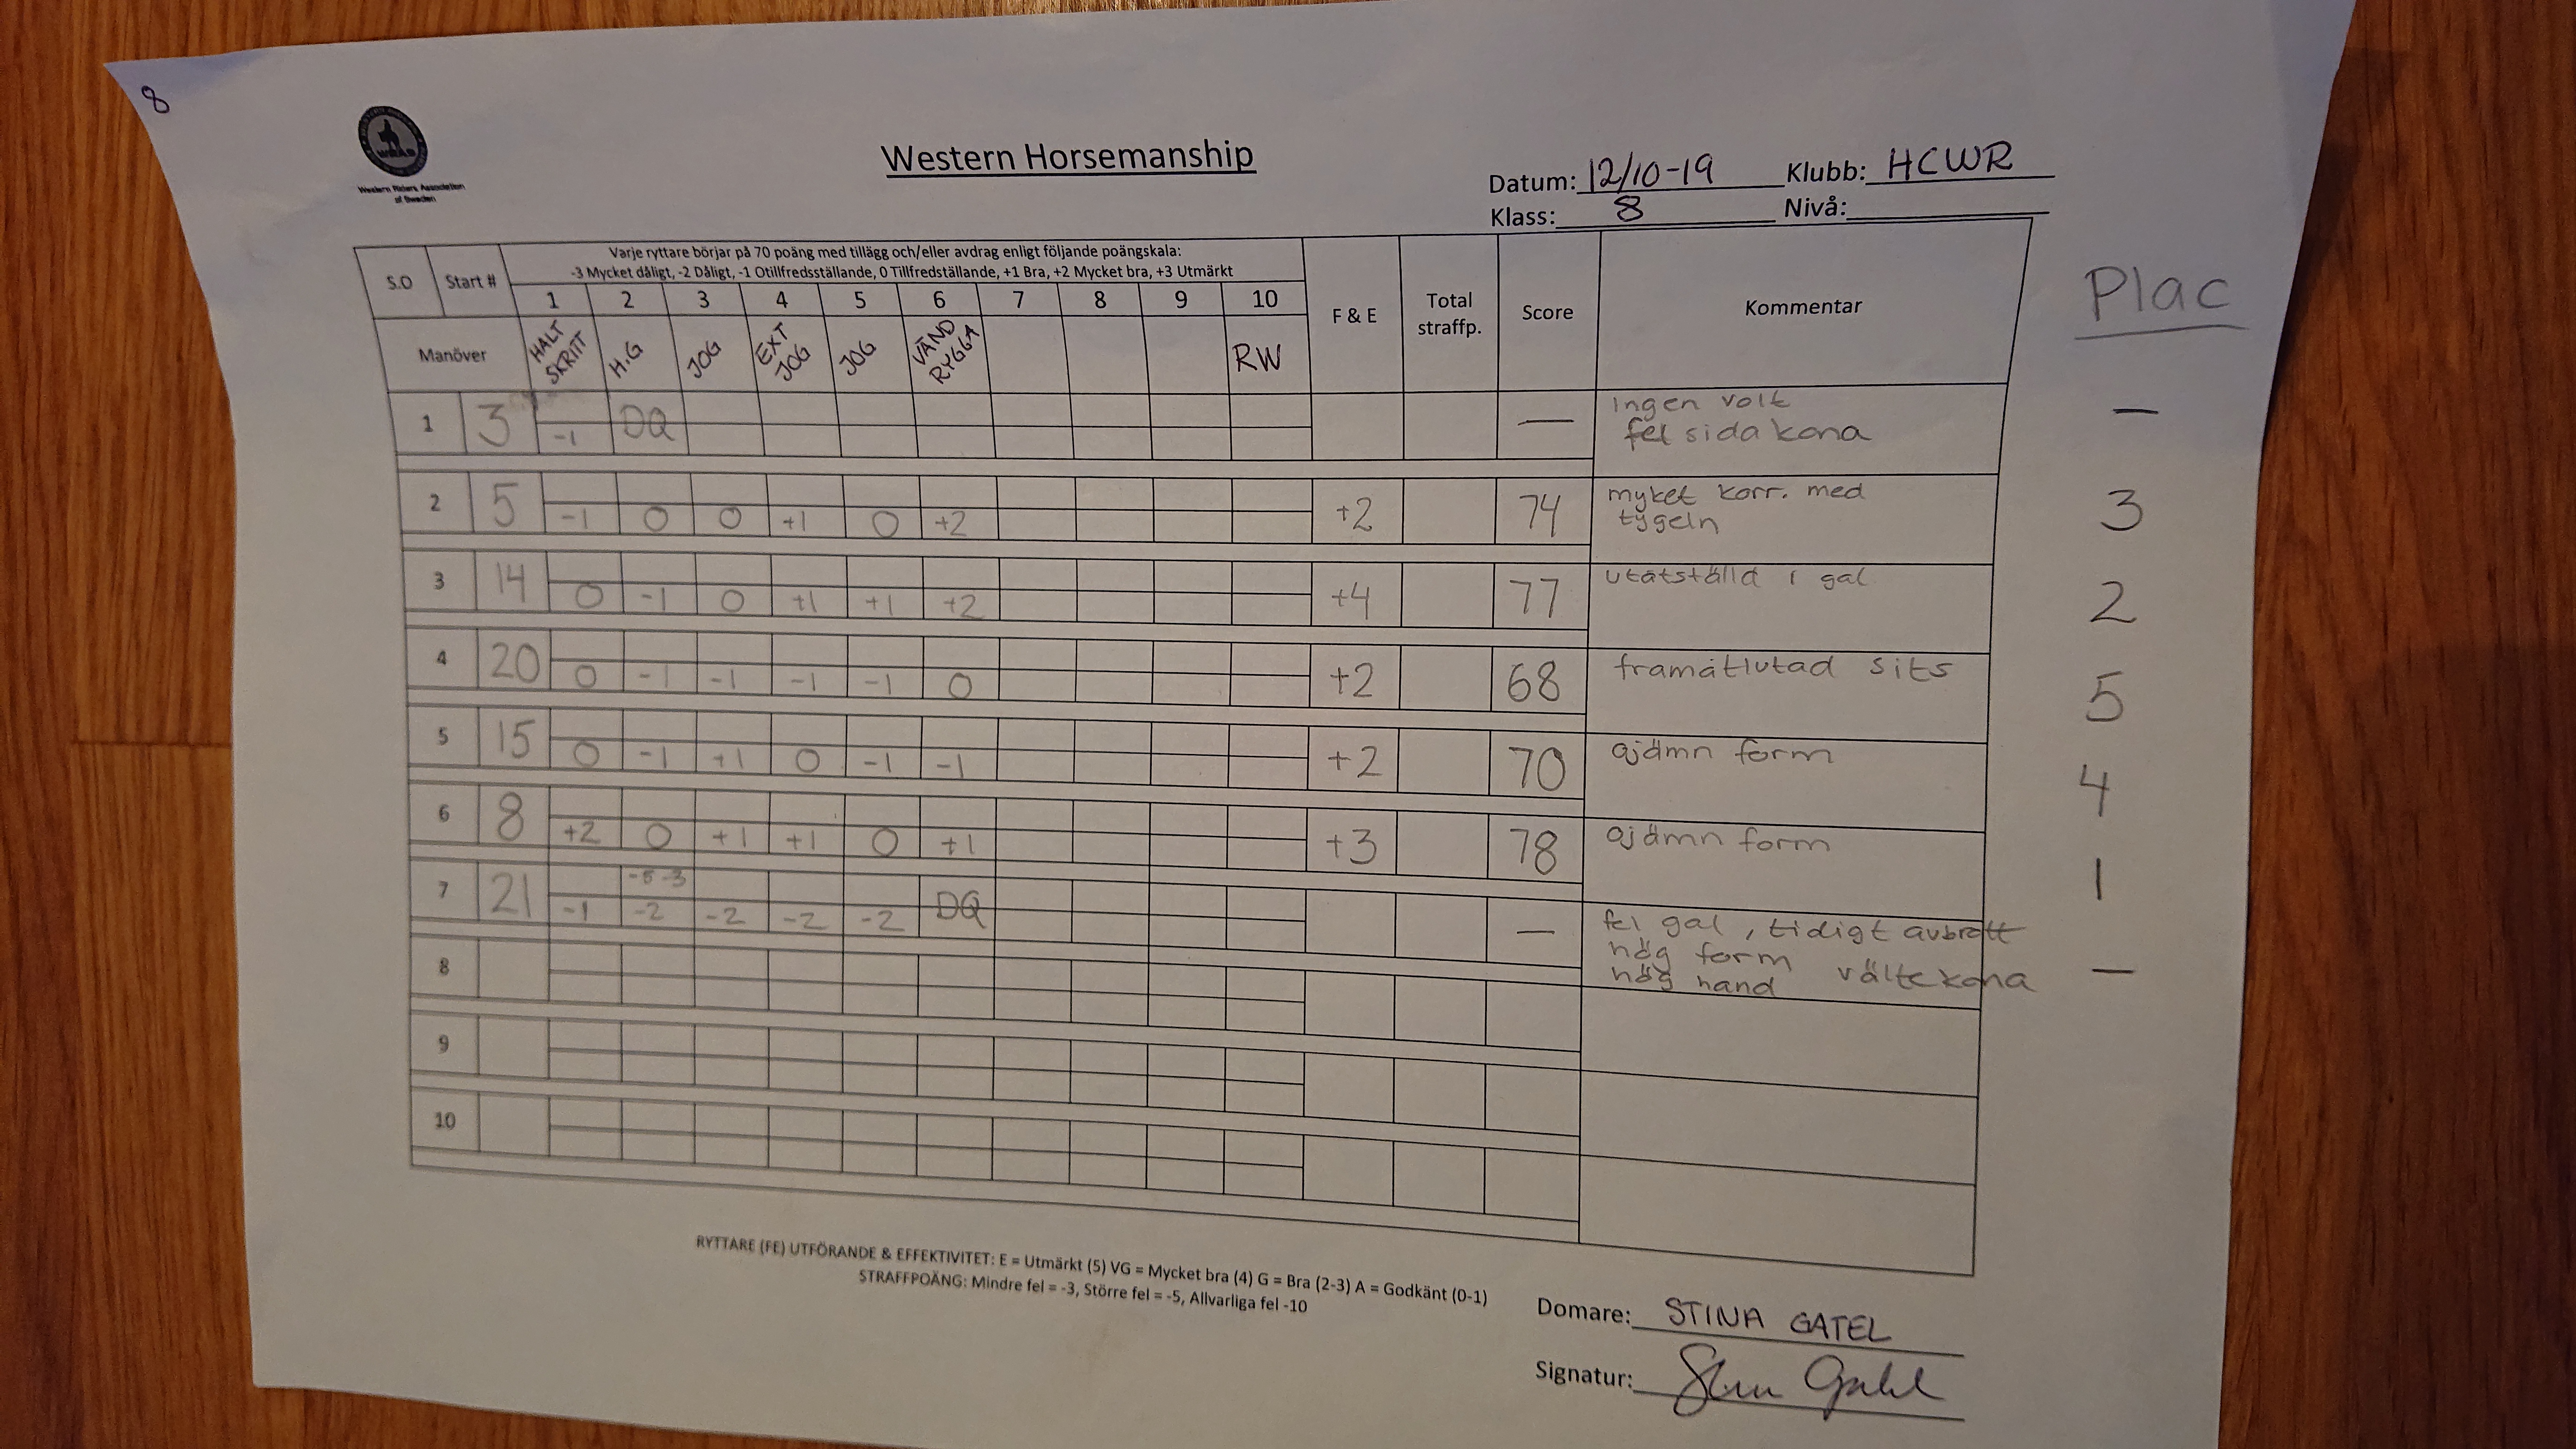 8
WRAS
Western Riders Association
of Sweden
Western Horsemanship
Datum: 12/10-19 Klubb: HCWR
Klass: 8 Nivå:
S.O Start # Varje ryttare börjar på 70 poäng med tillägg och/eller avdrag enligt följande poängskala:
-3 Mycket dåligt, -2 Dåligt, -1 Otillfredsställande, 0 Tillfredställande, +1 Bra, +2 Mycket bra, +3 Utmärkt
1 2 3 4 5 6 7 8 9 10 F & E Total straffp. Score Kommentar Plac
Manöver HALT SKRITT H.G JOG EXT JOG JOG VÄND RYGGA RW
1 3 -1 DQ — Ingen volt —
fel sida kona
2 5 -1 0 0 +1 0 +2 +2 74 myket korr. med 3
tygeln
3 14 0 -1 0 +1 +1 +2 +4 77 utåtställd i gal 2
4 20 0 -1 -1 -1 -1 0 +2 68 framåtlutad sits 5
5 15 0 -1 +1 0 -1 -1 +2 70 ojämn form 4
6 8 +2 0 +1 +1 0 +1 +3 78 ojämn form 1
-5 -3
7 21 -1 -2 -2 -2 -2 DQ — fel gal, tidigt avbrott —
hög form välte kona
hög hand
8
9
10
RYTTARE (FE) UTFÖRANDE & EFFEKTIVITET: E = Utmärkt (5) VG = Mycket bra (4) G = Bra (2-3) A = Godkänt (0-1)
STRAFFPOÄNG: Mindre fel = -3, Större fel = -5, Allvarliga fel -10
Domare: STINA GATEL
Signatur: